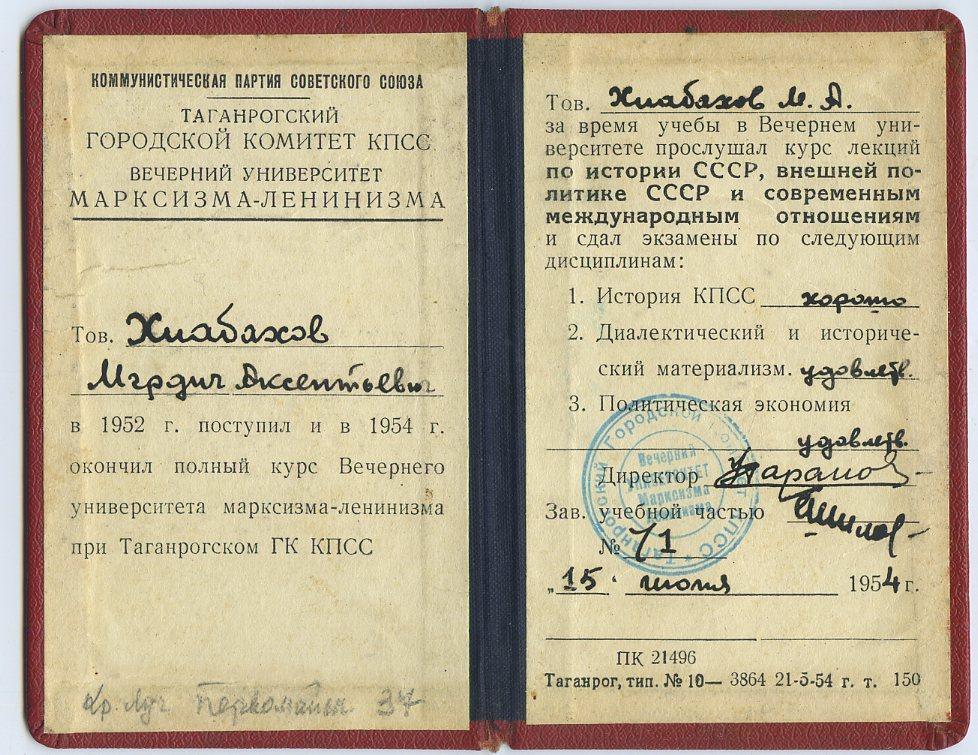 КОММУНИСТИЧЕСКАЯ ПАРТИЯ СОВЕТСКОГО СОЮЗА
ТАГАНРОГСКИЙ
ГОРОДСКОЙ КОМИТЕТ КПСС
ВЕЧЕРНИЙ УНИВЕРСИТЕТ
МАРКСИЗМА-ЛЕНИНИЗМА
Тов. Хиабахов
Мгрдич Аксентьевич
в 1952 г. поступил и в 1954 г.
окончил полный курс Вечернего
университета марксизма-ленинизма
при Таганрогском ГК КПСС
Кр. Луч Первомайск 37
Тов. Хиабахов М. А.
за время учебы в Вечернем уни-
верситете прослушал курс лекций
по истории СССР, внешней по-
литике СССР и современным
международным отношениям
и сдал экзамены по следующим
дисциплинам:
1. История КПСС хорошо
2. Диалектический и историче-
ский материализм. удовлетв.
3. Политическая экономия
удовлетв.
Директор
Зав. учебной частью
№ 71
„15 июля 1954 г.
Таганрогский Городской Комитет КПСС
Вечерний
Университет
Марксизма
Ленинизма
ПК 21496
Таганрог, тип. № 10— 3864 21-5-54 г. т. 150